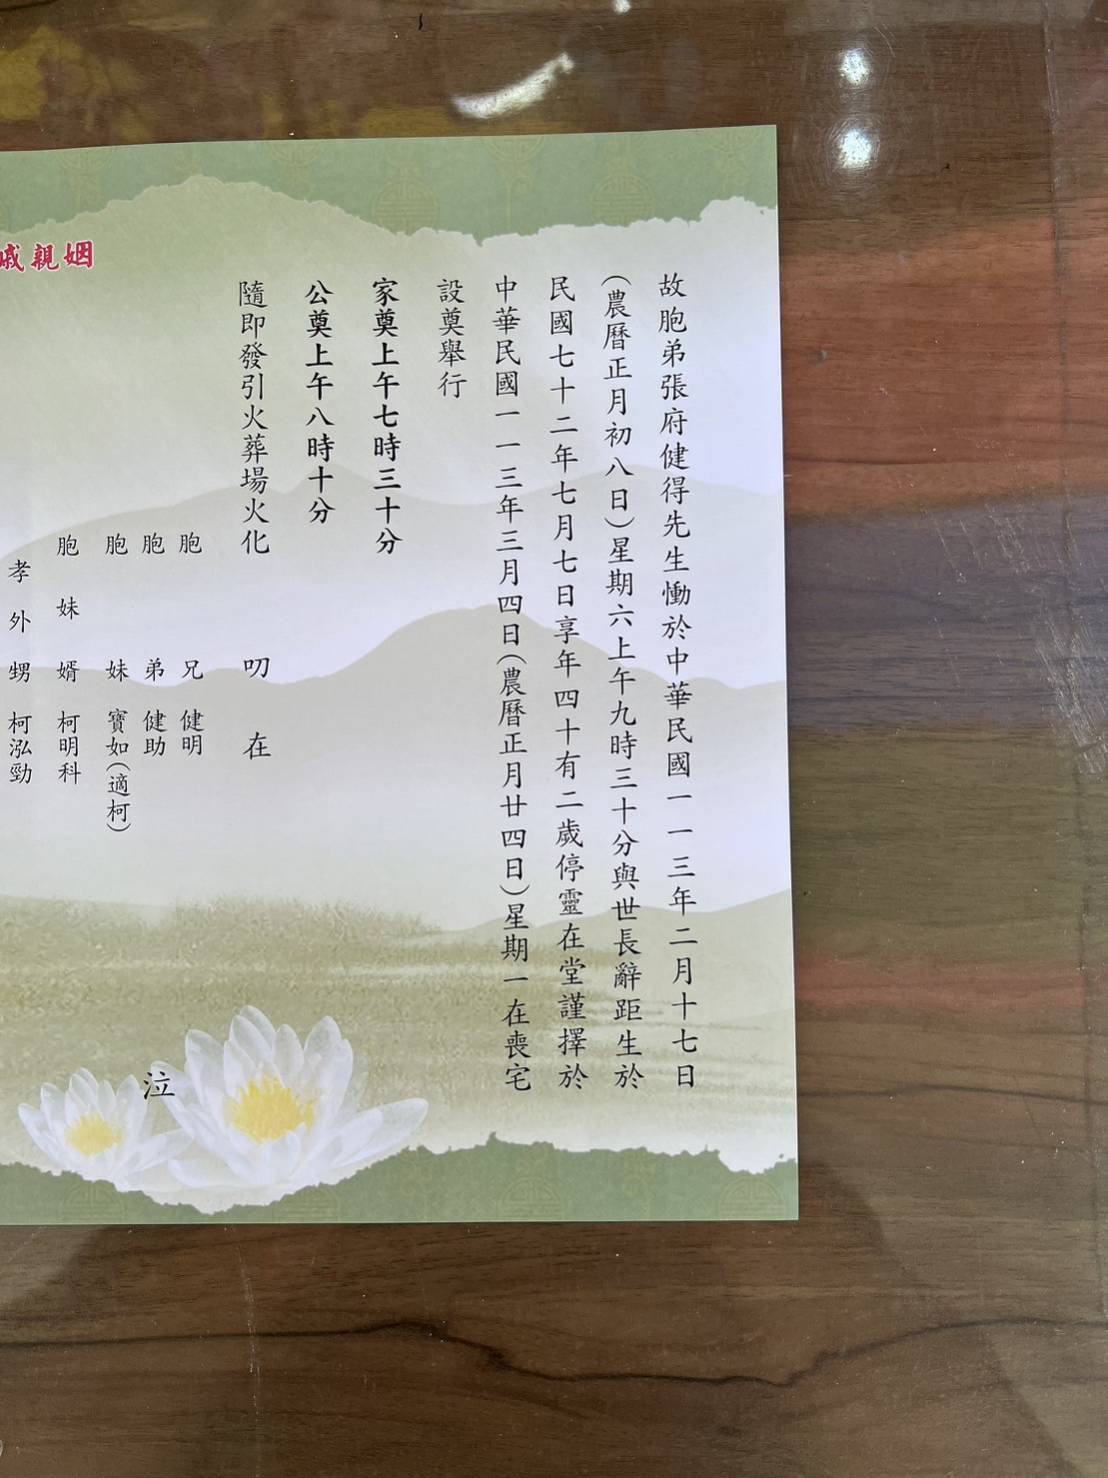 故胞弟張府健得先生慟於中華民國一一三年二月十七日
(農曆正月初八日)星期六上午九時三十分與世長辭距生於
民國七十二年七月七日享年四十有二歲停靈在堂謹擇於
中華民國一一三年三月四日(農曆正月廿四日)星期一在喪宅
設奠舉行
家奠上午七時三十分
公奠上午八時十分
隨即發引火葬場火化 叨在
姻親戚
胞兄 健明
胞弟 健助
胞妹 寶如(適柯)
胞妹婿 柯明科
孝外甥 柯泓勁
泣